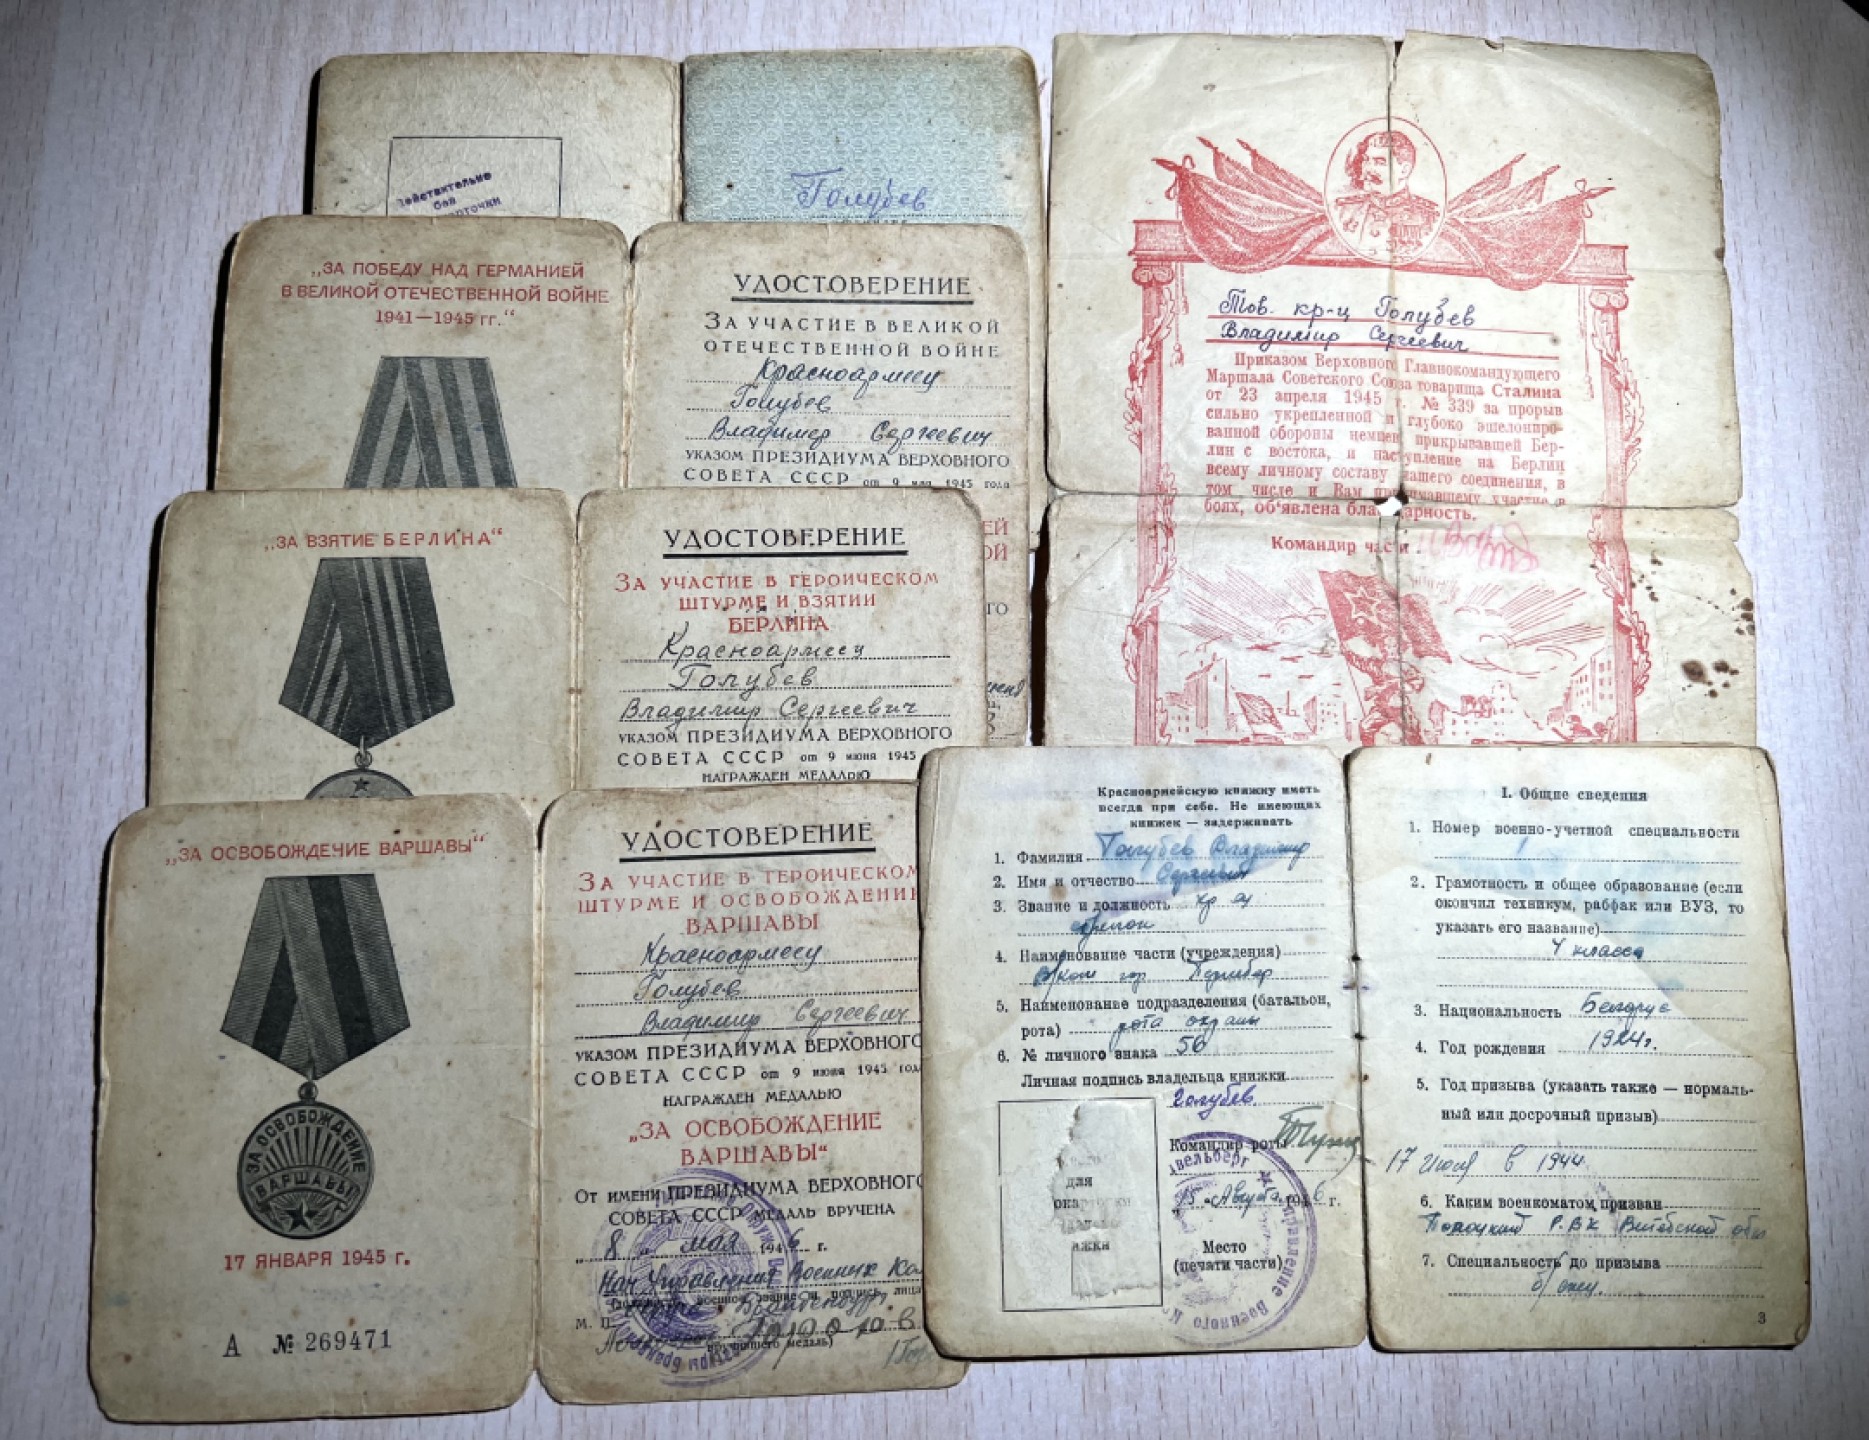 Действительно
без
карточки
Голубев
„ЗА ПОБЕДУ НАД ГЕРМАНИЕЙ
В ВЕЛИКОЙ ОТЕЧЕСТВЕННОЙ ВОЙНЕ
1941—1945 гг.“
УДОСТОВЕРЕНИЕ
ЗА УЧАСТИЕ В ВЕЛИКОЙ
ОТЕЧЕСТВЕННОЙ ВОЙНЕ
Красноармеец
Голубев
Владимир Сергеевич
УКАЗОМ ПРЕЗИДИУМА ВЕРХОВНОГО
СОВЕТА СССР от 9 мая 1945 года
„ЗА ВЗЯТИЕ БЕРЛИНА“
УДОСТОВЕРЕНИЕ
ЗА УЧАСТИЕ В ГЕРОИЧЕСКОМ
ШТУРМЕ И ВЗЯТИИ
БЕРЛИНА
Красноармеец
Голубев
Владимир Сергеевич
УКАЗОМ ПРЕЗИДИУМА ВЕРХОВНОГО
СОВЕТА СССР от 9 июня 1945
НАГРАЖДЕН МЕДАЛЬЮ
„ЗА ОСВОБОЖДЕНИЕ ВАРШАВЫ“
ЗА ОСВОБОЖДЕНИЕ
ВАРШАВЫ
17 ЯНВАРЯ 1945 г.
А № 269471
УДОСТОВЕРЕНИЕ
ЗА УЧАСТИЕ В ГЕРОИЧЕСКОМ
ШТУРМЕ И ОСВОБОЖДЕНИИ
ВАРШАВЫ
Красноармеец
Голубев
Владимир Сергеевич
УКАЗОМ ПРЕЗИДИУМА ВЕРХОВНОГО
СОВЕТА СССР от 9 июня 1945 года
НАГРАЖДЕН МЕДАЛЬЮ
„ЗА ОСВОБОЖДЕНИЕ
ВАРШАВЫ“
ОТ ИМЕНИ ПРЕЗИДИУМА ВЕРХОВНОГО
СОВЕТА СССР МЕДАЛЬ ВРУЧЕНА
„8„ мая 1946 г.
Нач Управления Военных Ком
М. П.
вручившего медаль)
Тов. кр-ц Голубев
Владимир Сергеевич
Приказом Верховного Главнокомандующего
Маршала Советского Союза товарища Сталина
от 23 апреля 1945 г. № 339 за прорыв
сильно укрепленной и глубоко эшелониро-
ванной обороны немцев, прикрывавшей Бер-
лин с востока, и наступление на Берлин
всему личному составу нашего соединения, в
том числе и Вам принимавшему участие в
боях, об'явлена благодарность.
Командир части
Красноармейскую книжку иметь
всегда при себе. Не имеющих
книжек — задерживать
1. Фамилия Голубев Владимир
2. Имя и отчество
3. Звание и должность кр ц
4. Наименование части (учреждения)
5. Наименование подразделения (батальон,
рота) рота охраны
6. № личного знака 56
Личная подпись владельца книжки
Голубев.
Командир роты
15 Августа 1946 г.
для
Место
(печати части)
I. Общие сведения
1. Номер военно-учетной специальности
1
2. Грамотность и общее образование (если
окончил техникум, рабфак или ВУЗ, то
указать его название)
4 класса
3. Национальность Белорус
4. Год рождения 1924г.
5. Год призыва (указать также — нормаль-
ный или досрочный призыв)
17 июля в 1944
6. Каким военкоматом призван
Полоцкий Р.В.К Витебской обл
7. Специальность до призыва
3